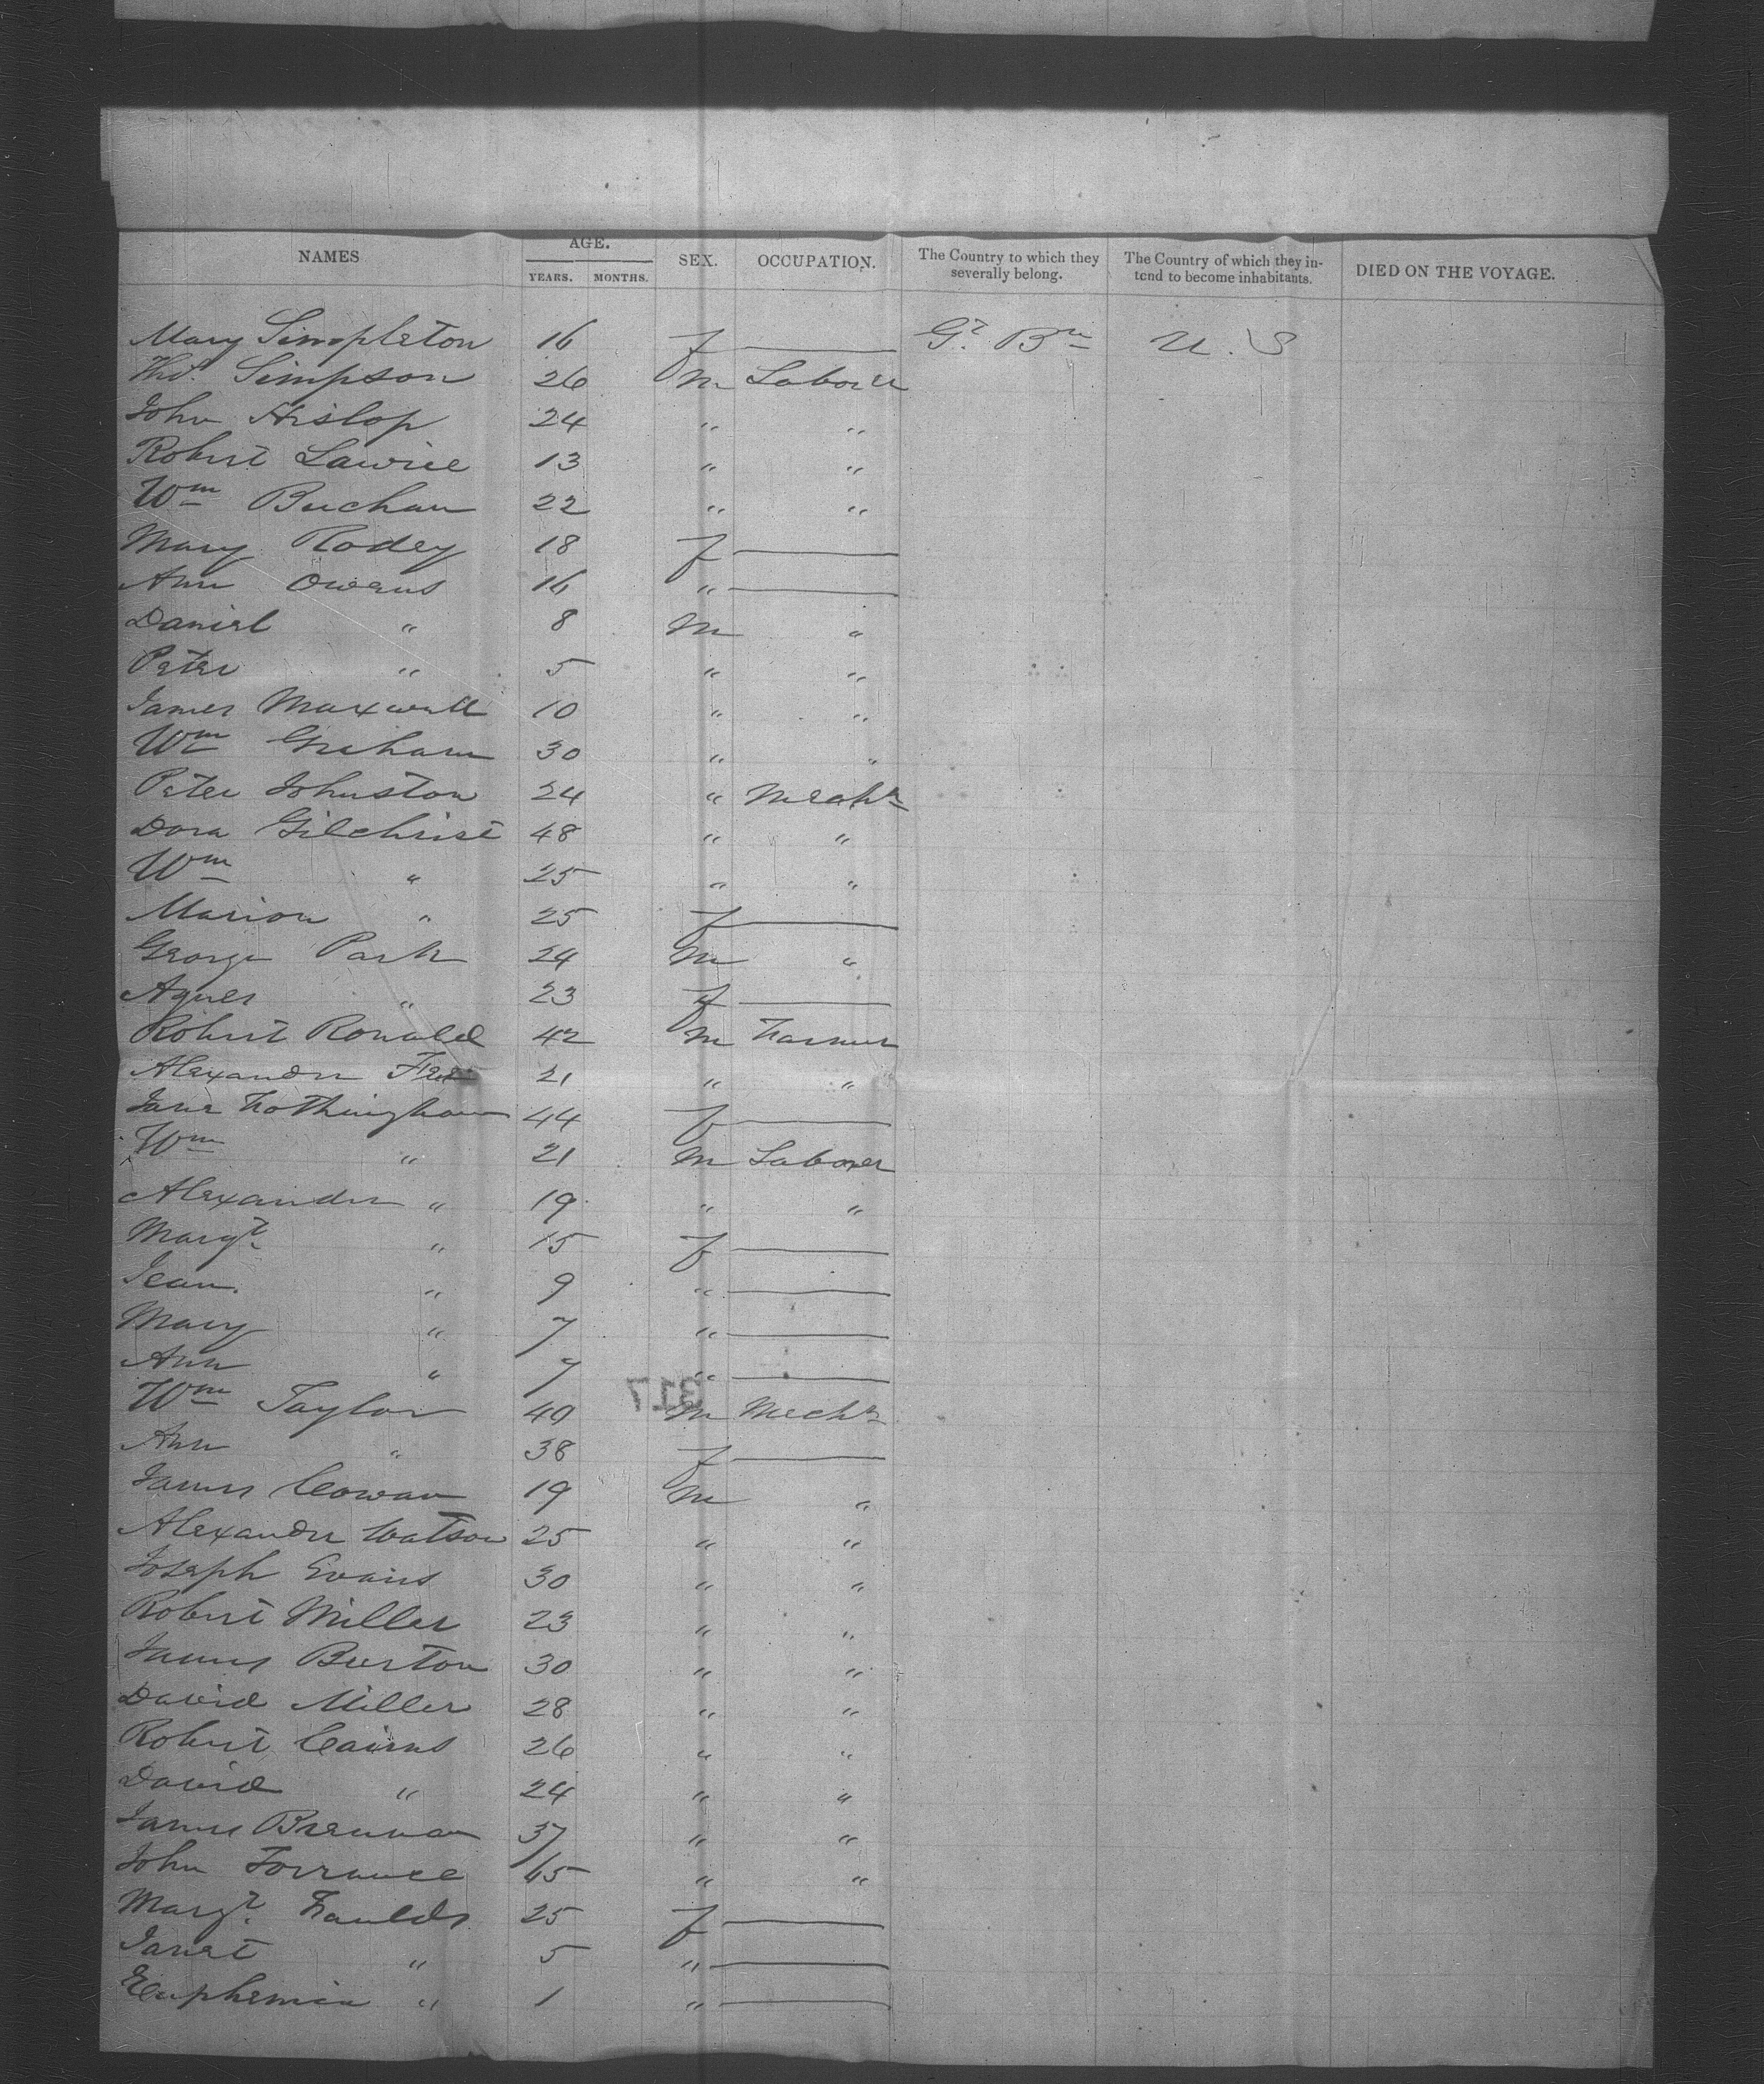 NAMES AGE. YEARS. MONTHS. SEX. OCCUPATION. The Country to which they severally belong. The Country of which they intend to become inhabitants. DIED ON THE VOYAGE.
Mary Simpleton 16 f — Gt. Bn U.S
Thos. Simpson 26 M Laborer
John Hislop 24 " "
Robert Lawrie 13 " "
Wm Buchan 22 " "
Mary Rodey 18 f —
Ann Owens 16 " —
Daniel " 8 M "
Peter " 5 " "
James Maxwell 10 " "
Wm Graham 30 " "
Peter Johnston 24 " Mechn
Dora Gilchrist 48 " "
Wm " 25 " "
Marion " 25 f —
George Park 24 M "
Agnes " 23 f —
Robert Ronald 42 M Farmer
Alexander 21 " "
Jane Fothringham 44 f —
Wm " 21 M Laborer
Alexander " 19 " "
Margt " 15 f —
Jean " 9 " —
Mary " 7 " —
Ann " 7 " —
317
Wm Taylor 49 M Mechn
Ann " 38 f —
James Cowan 19 M "
Alexander Watson 25 " "
Joseph Evans 30 " "
Robert Miller 23 " "
James Burton 30 " "
David Miller 28 " "
Robert Cairns 26 " "
David " 24 " "
James Brennan 37 " "
John Torrance 65 " "
Margt. Faulds 25 f —
Janet " 5 " —
Euphemia " 1 " —